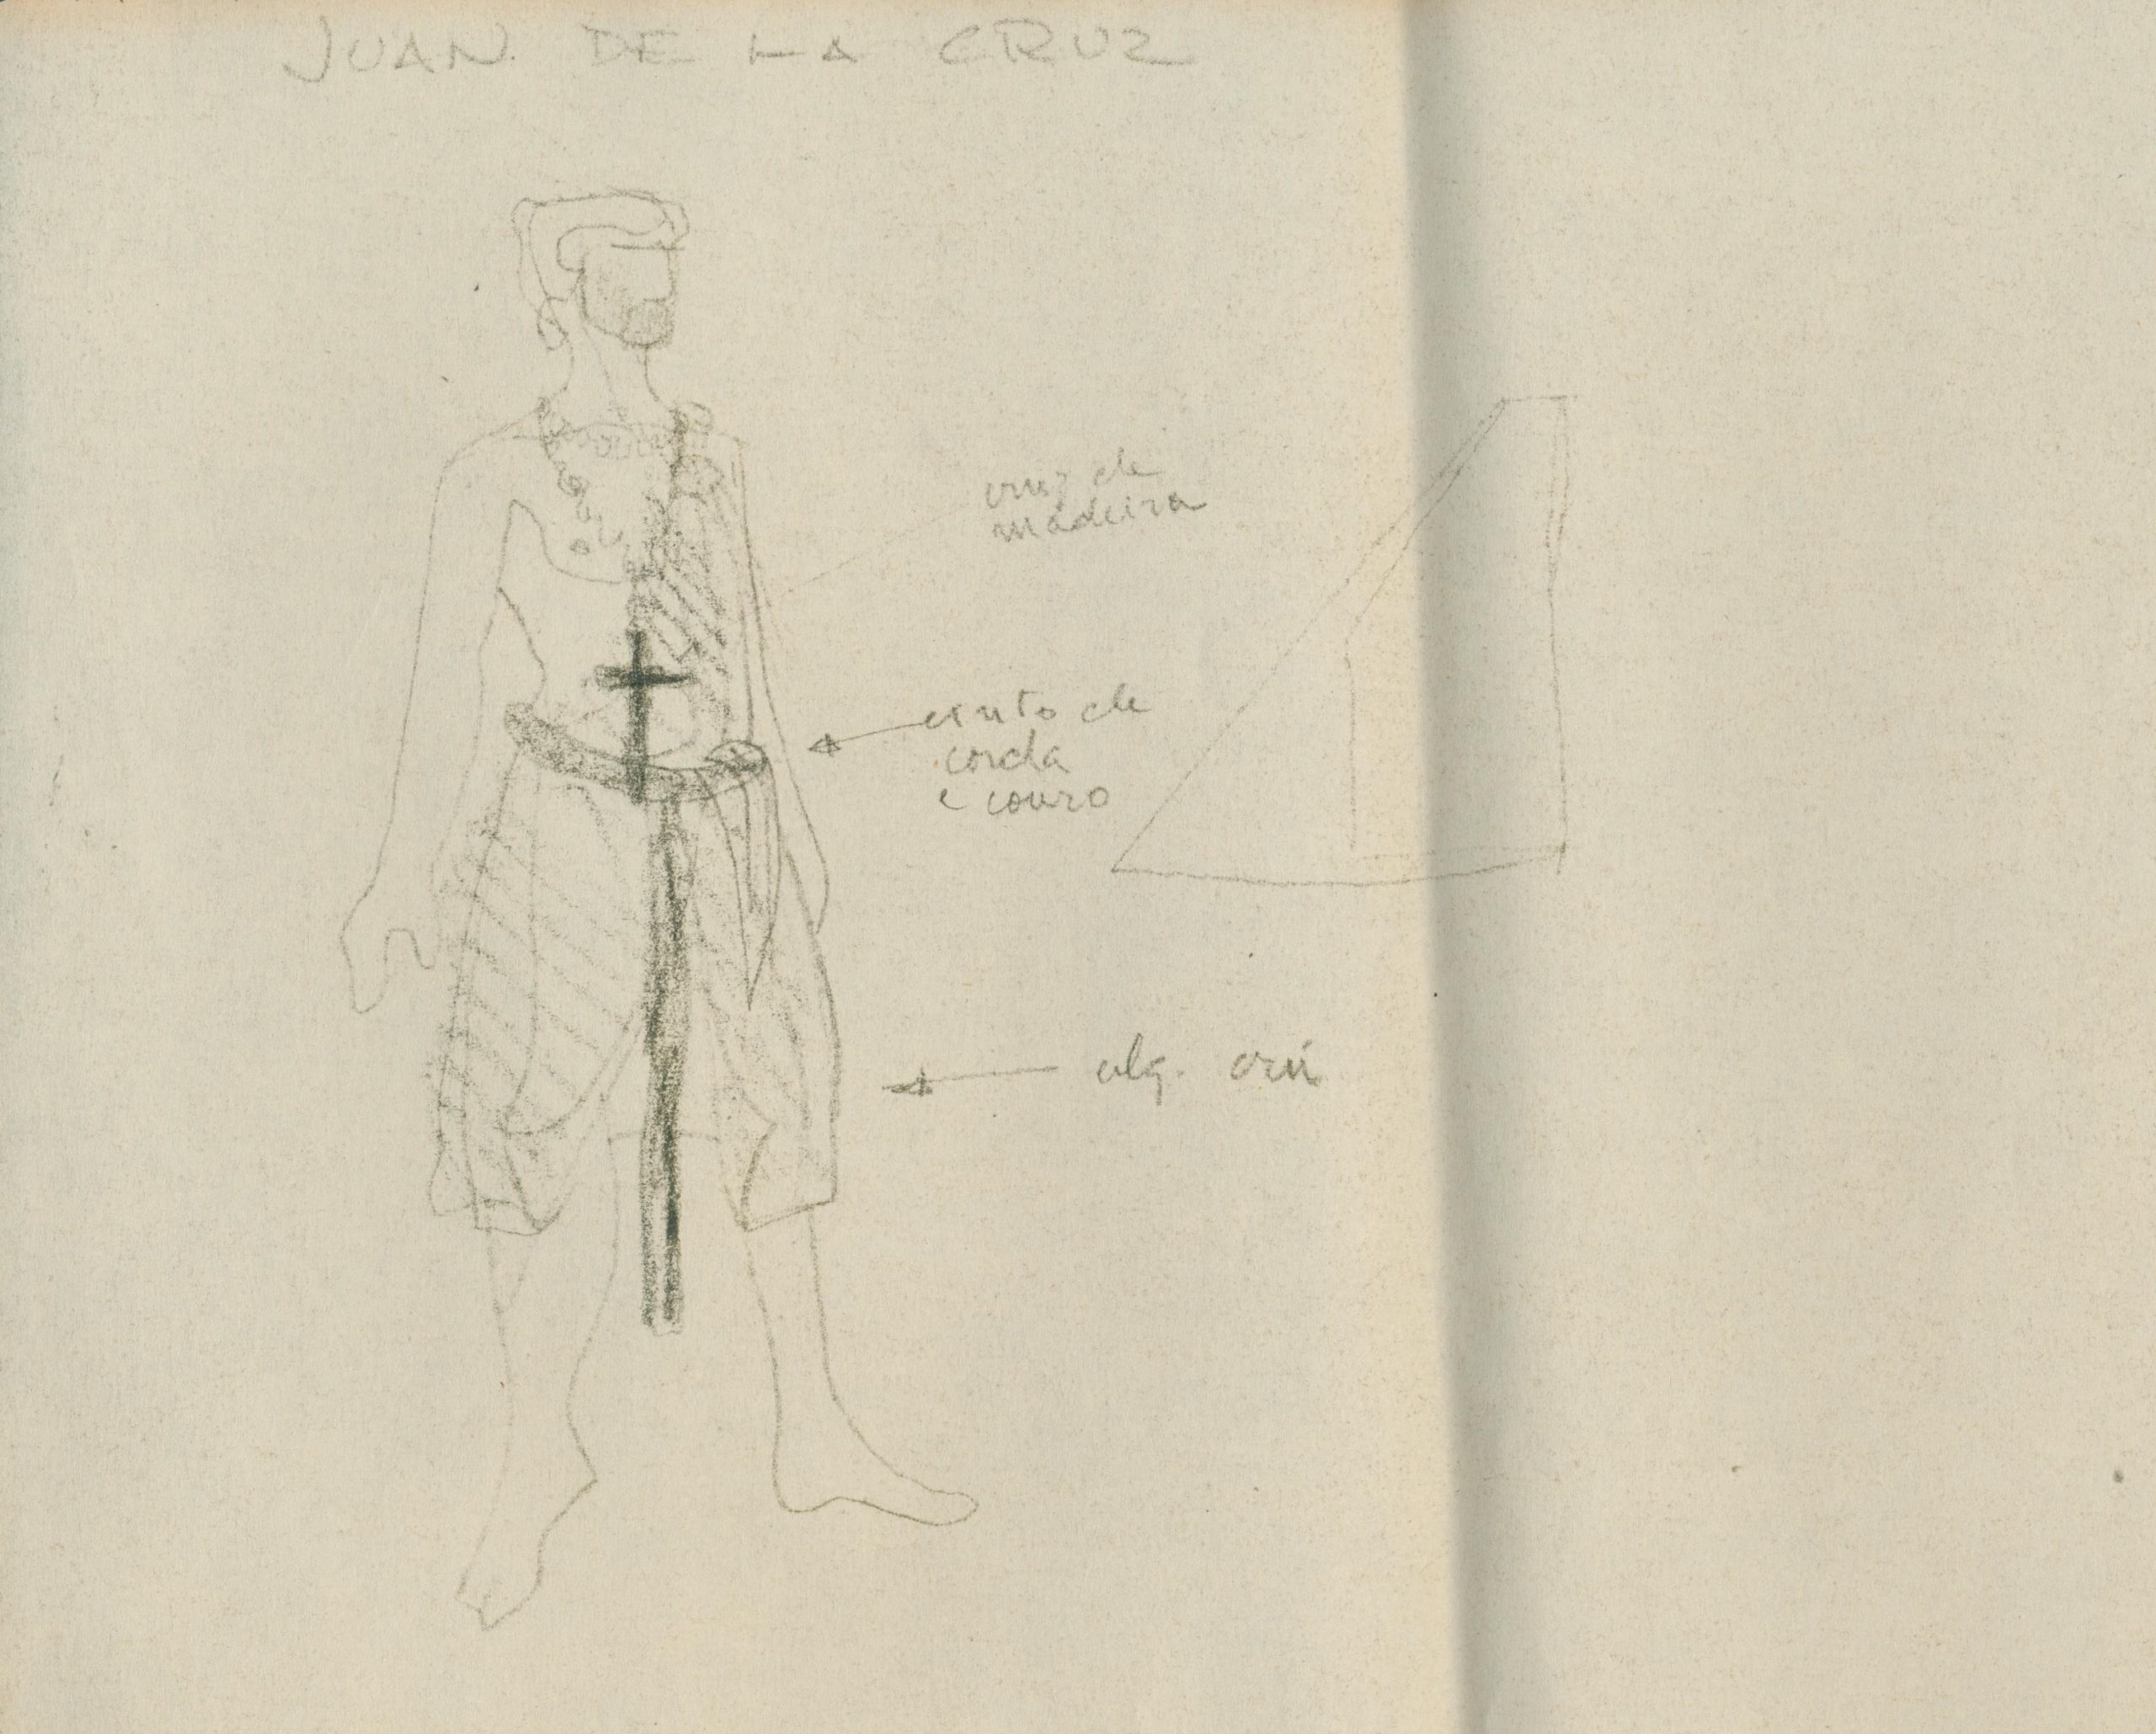 JUAN DE LA CRUZ
cruz de
madeira
cinto de
corda
e couro
alg. crú